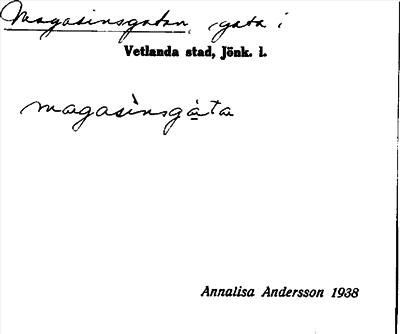 Magasinsgatan, gata i
Vetlanda stad, Jönk. l.
magasìnsgàta
Annalisa Andersson 1938